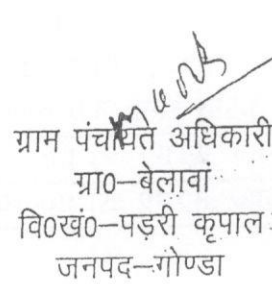 ग्राम पंचायत अधिकारी
ग्रा0–बेलावां
वि0खं0–पड़री कृपाल
जनपद–गोण्डा